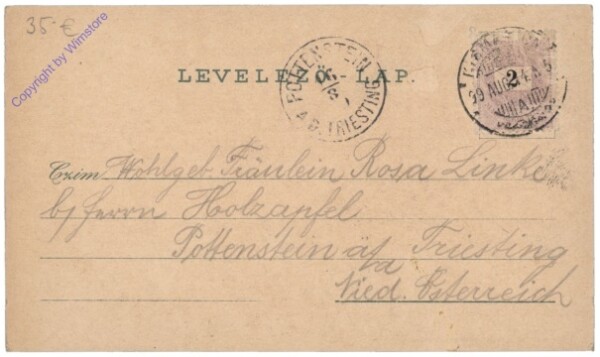 35.-€
Copyright by Wimstore
LEVELEZŐ-LAP.
POTTENSTEIN
A. D. TRIESTING
2
99 AUG
Czim: Wohlgeb. Fräulein Rosa Linke
b/ Herrn Holzapfel
Pottenstein a/d Triesting
Nied. Österreich